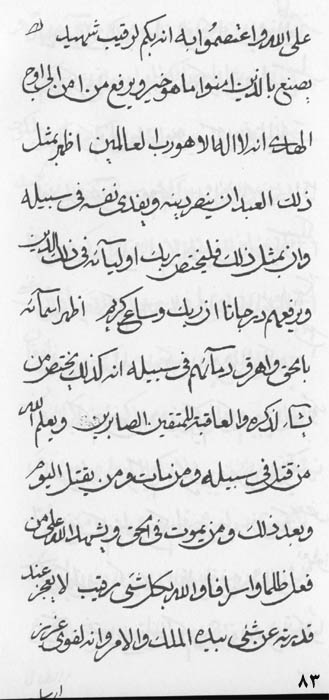 على الله واعتصموا به انه بكم لرقيب شهيد
يصنع بالذين امنوا ما هو خير ويرفع من
انه لا اله الا هو رب العالمين اظهر بمثل
ذلك العبد ان ينصر دينه ويفدى نفسه فى سبيله
وان بمثل ذلك فليختص ربك اوليائه فى ذلك الدين
ويرفعهم درجاتا ان ربك وساع كريم اظهر اسمائه
بالحق واهرق دمائهم فى سبيله انه كذلك يختص من
يشاء لذكره والعاقبة للمتقين الصابرين ويعلم الله
من قتل فى سبيله ومن مات ومن يقتل اليوم
وبعد ذلك ومن يموت فى الحق ويشهد الله على من
فعل ظلما واسرافا والله بكل شئ رهيب لا يعجز عند
قدرته عن شئ بيده الملك والامر وانه لقوى عزيز
٨٣